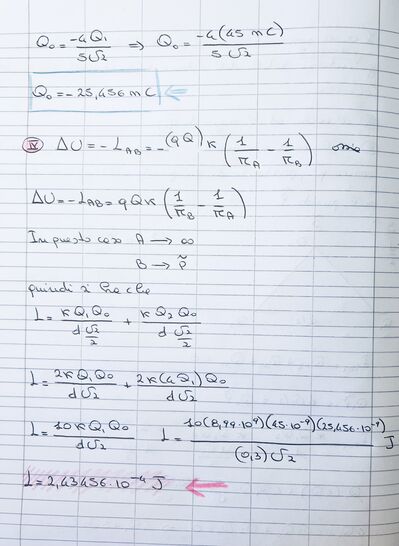 Q₀ = -4Q₁/5√2 ⇒ Q₀ = -4(45 mC)/5√2
Q₀ = -25,456 mC
IV ΔU = -L_AB = -(qQ)k(1/r_A - 1/r_B)
ΔU = -L_AB = qQk(1/r_B - 1/r_A)
In questo caso A → ∞
B → p̃
quindi si ha che
L = kQ₁Q₀/d√2/2 + kQ₂Q₀/d√2/2
L = 2kQ₁Q₀/d√2 + 2k(4Q₁)Q₀/d√2
L = 10kQ₁Q₀/d√2 L = 10(8,99·10⁻⁹)(45·10⁻⁹)(25,456·10⁻⁹)/(0,3)√2 J
L = 2,43456·10⁻⁴ J